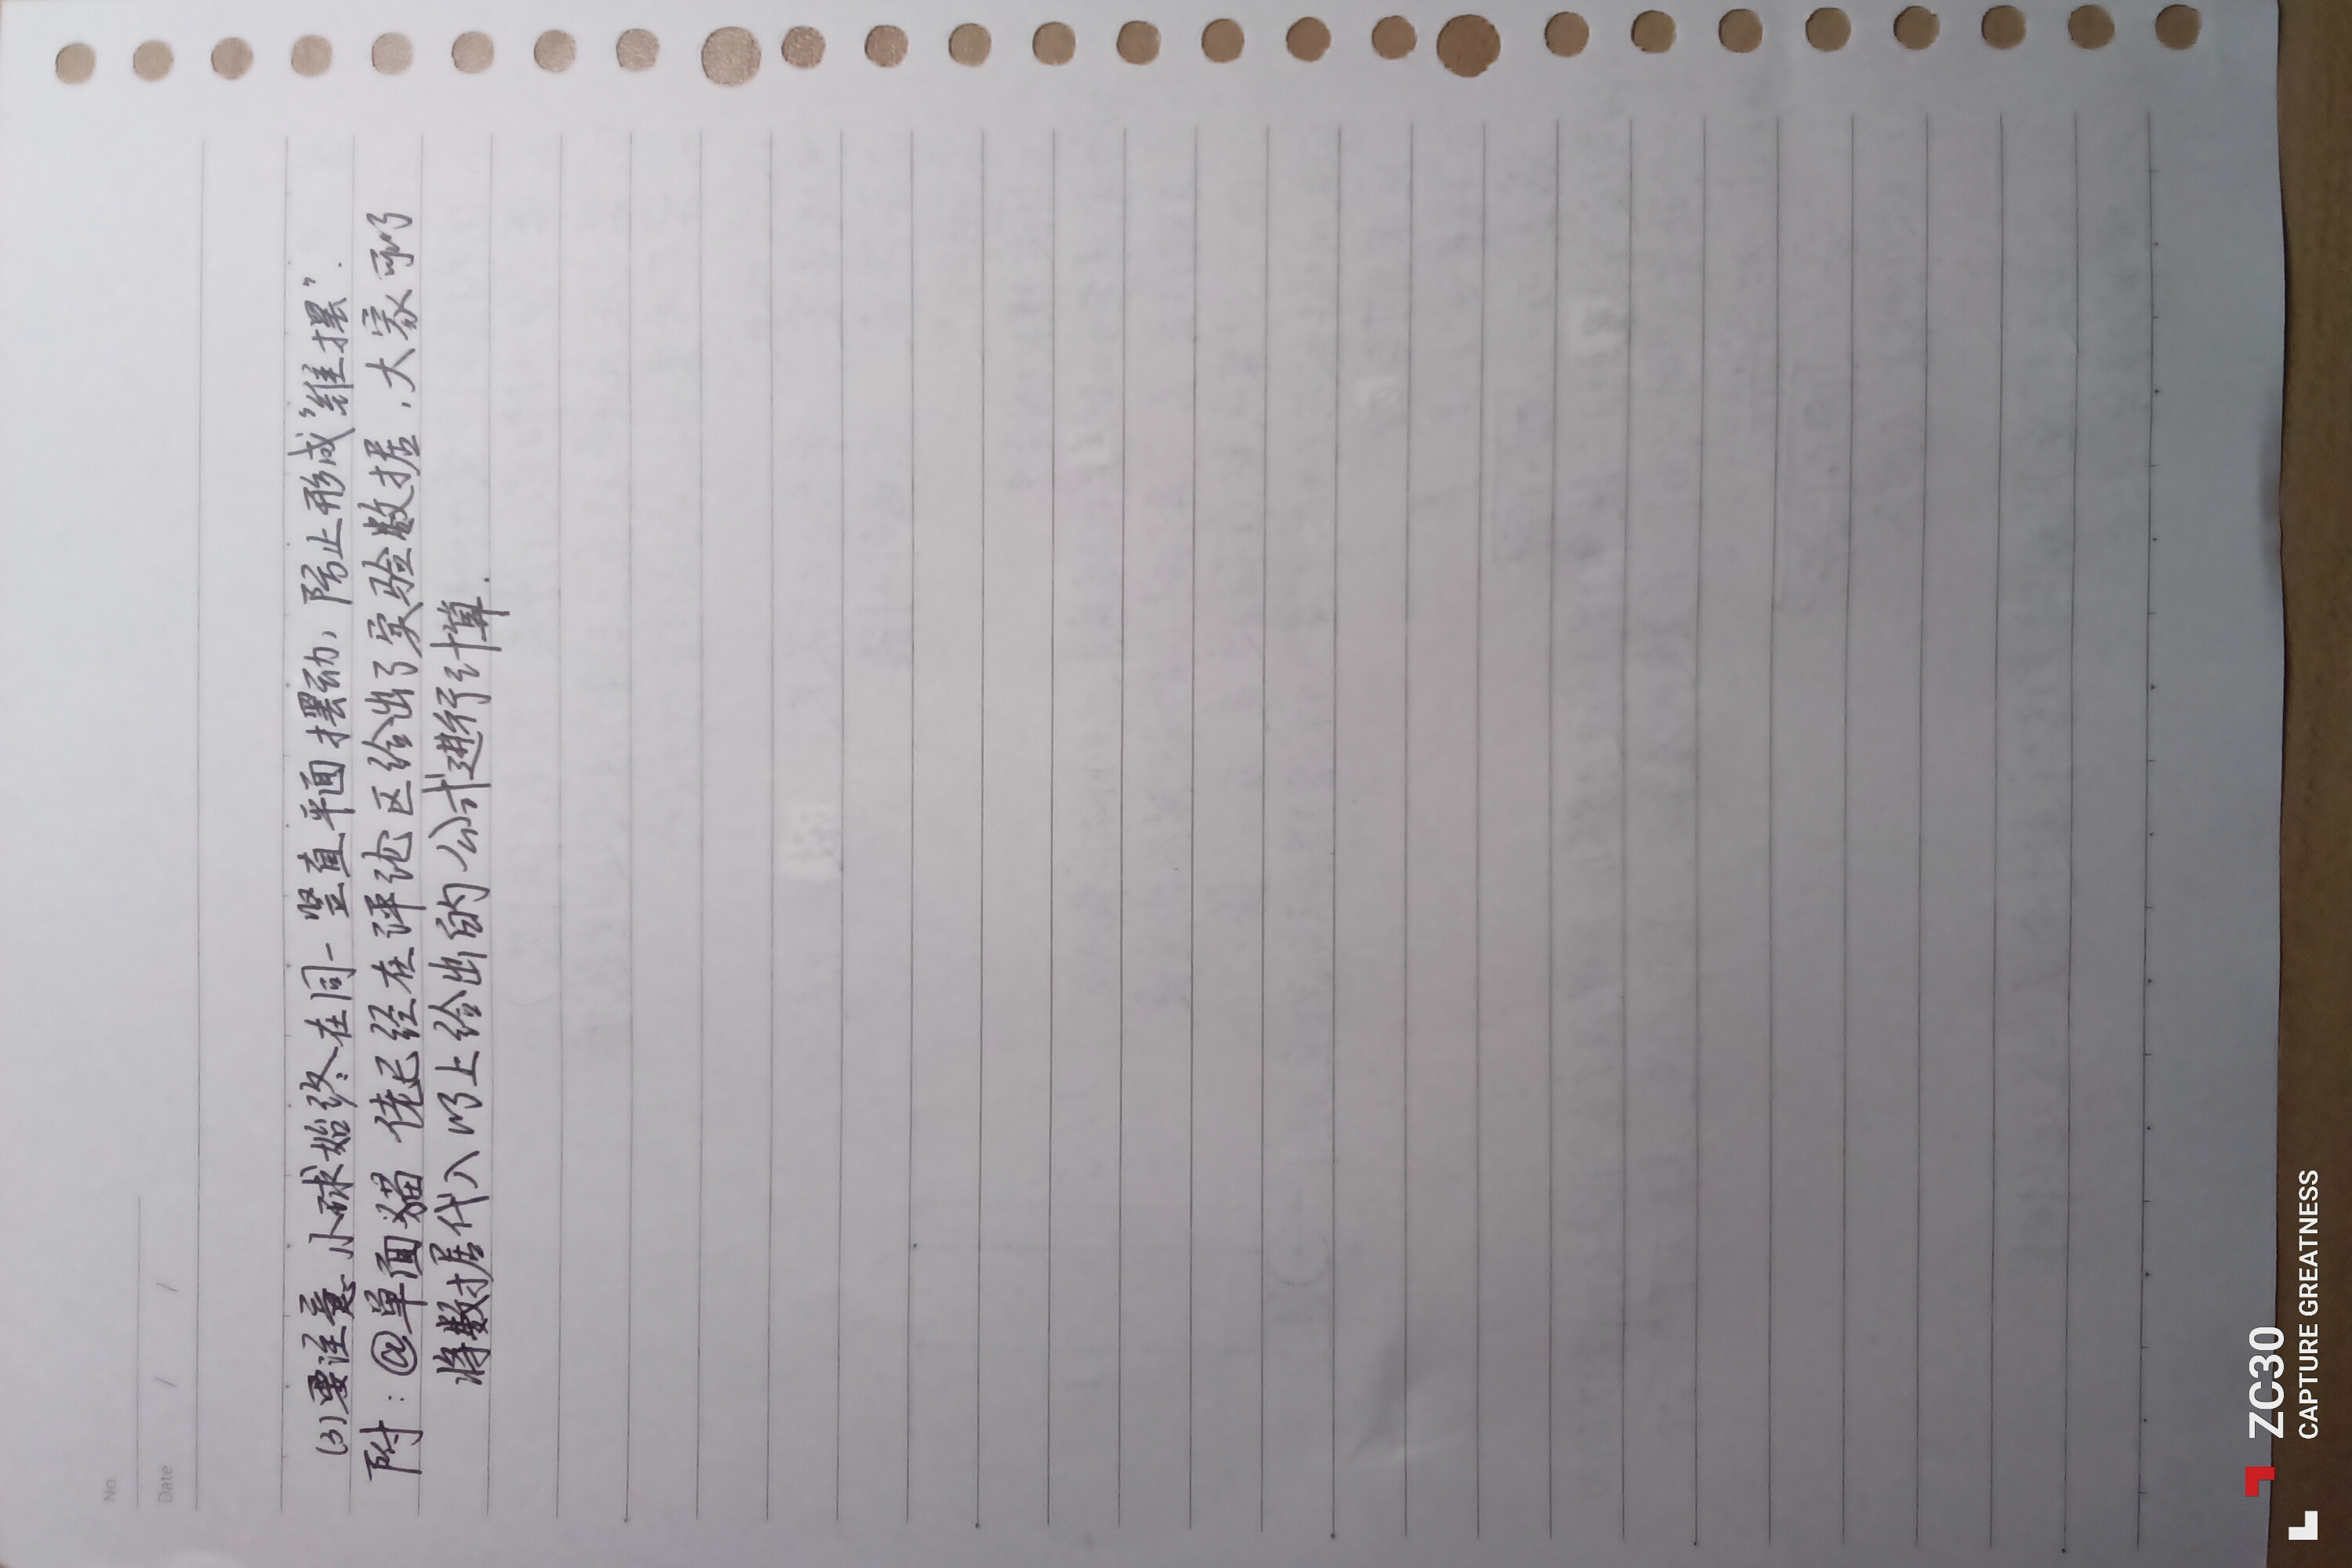 No.
Date / /
(3)要注意小球始终在同一竖直平面摆动，防止形成“锥摆”.
附：@单面猫 佬已经在评论区给出了实验数据，大家可以
将数据代入以上给出的公式进行计算.
ZC30
CAPTURE GREATNESS